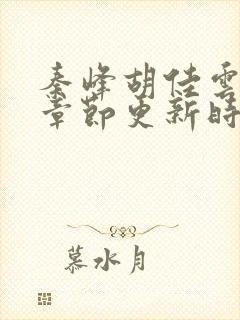 秦峰胡佳雲
章節更新時
慕水月